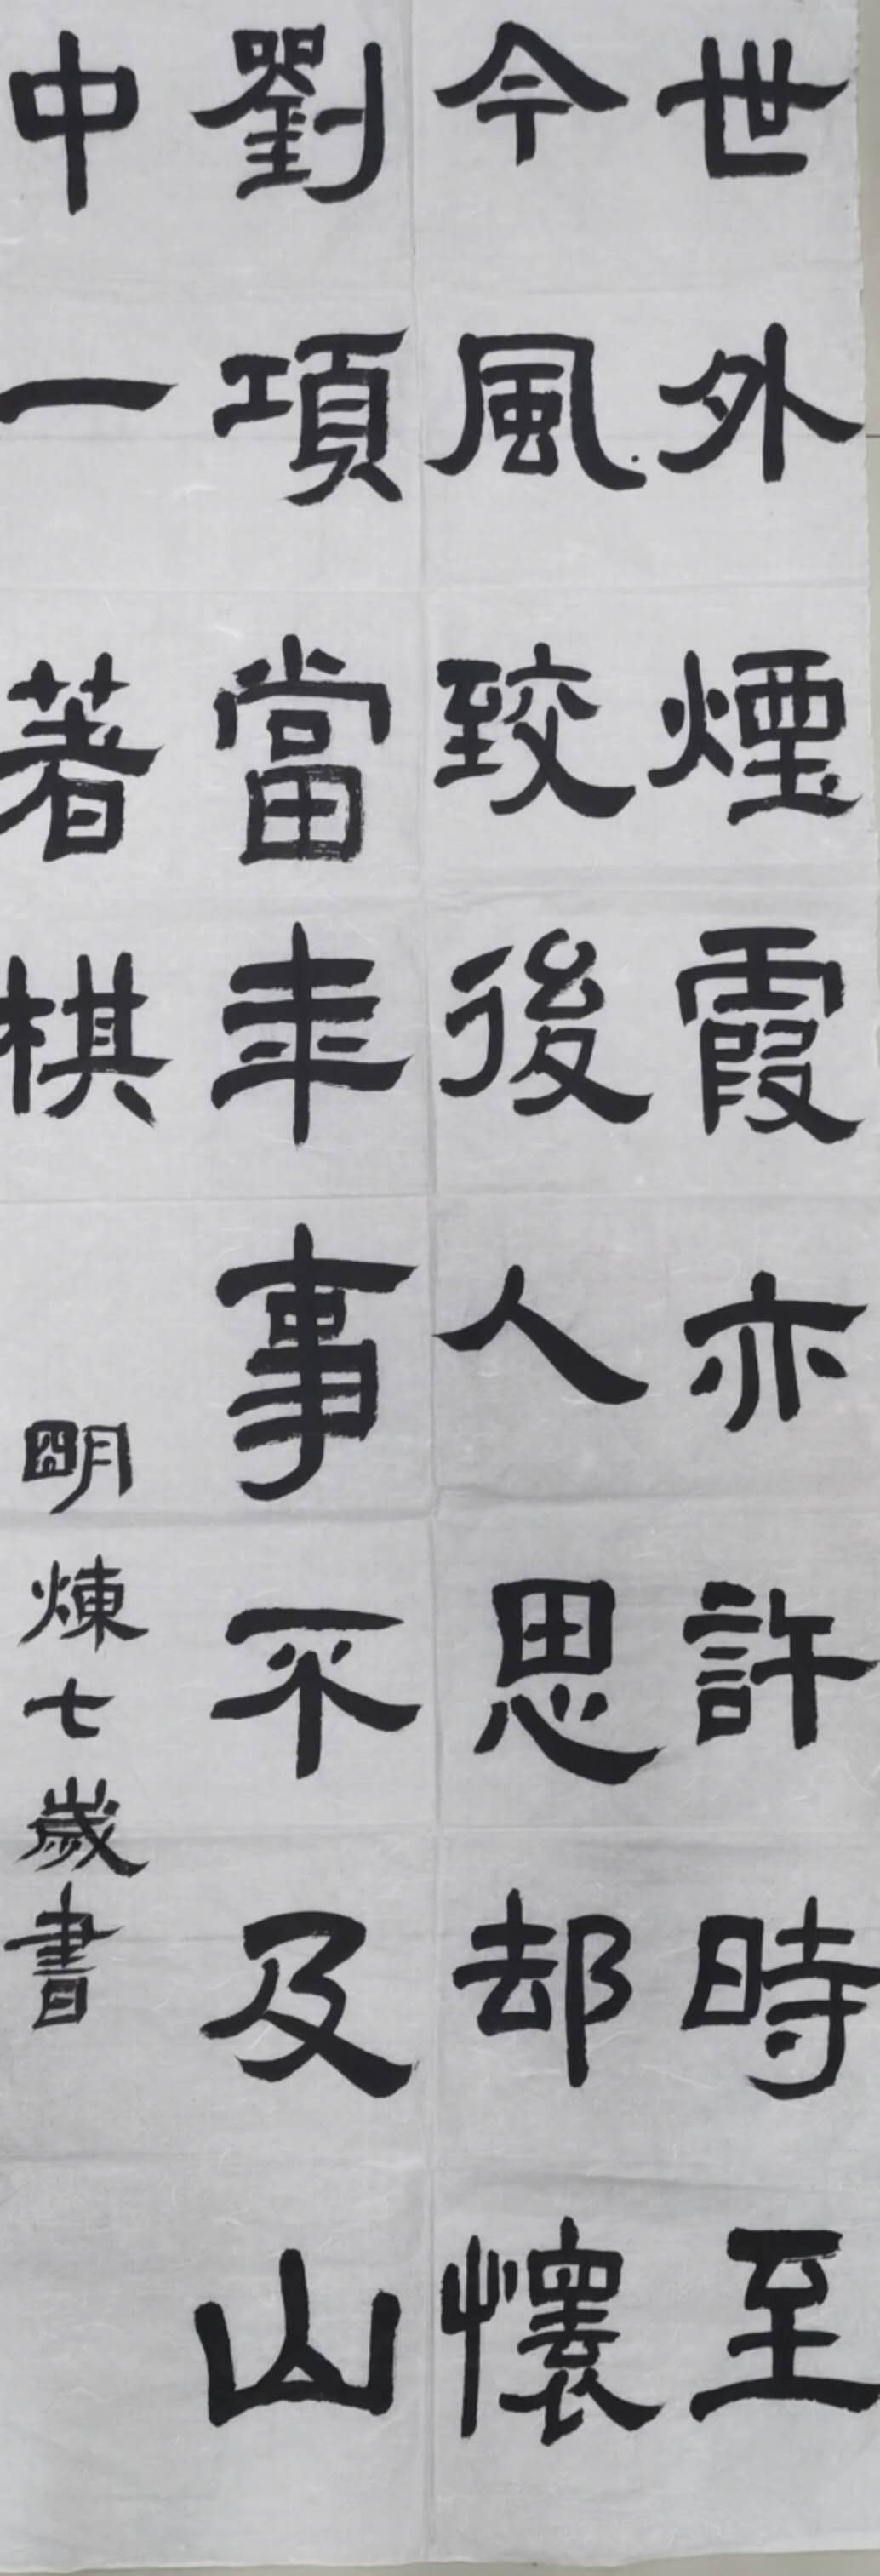 世外煙霞亦許時至
今風致後人思却懷
劉項當年事不及山
中一著棋
明煉七歲書